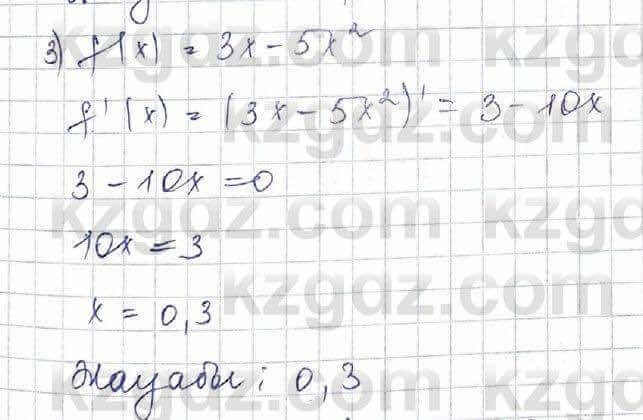 3) f(x) = 3x - 5x²
f'(x) = (3x - 5x²)' = 3 - 10x
3 - 10x = 0
10x = 3
x = 0,3
Жауабы: 0,3
kzgdz.com
kzgdz.com
kzgdz.com
kzgdz.com
kzgdz.com